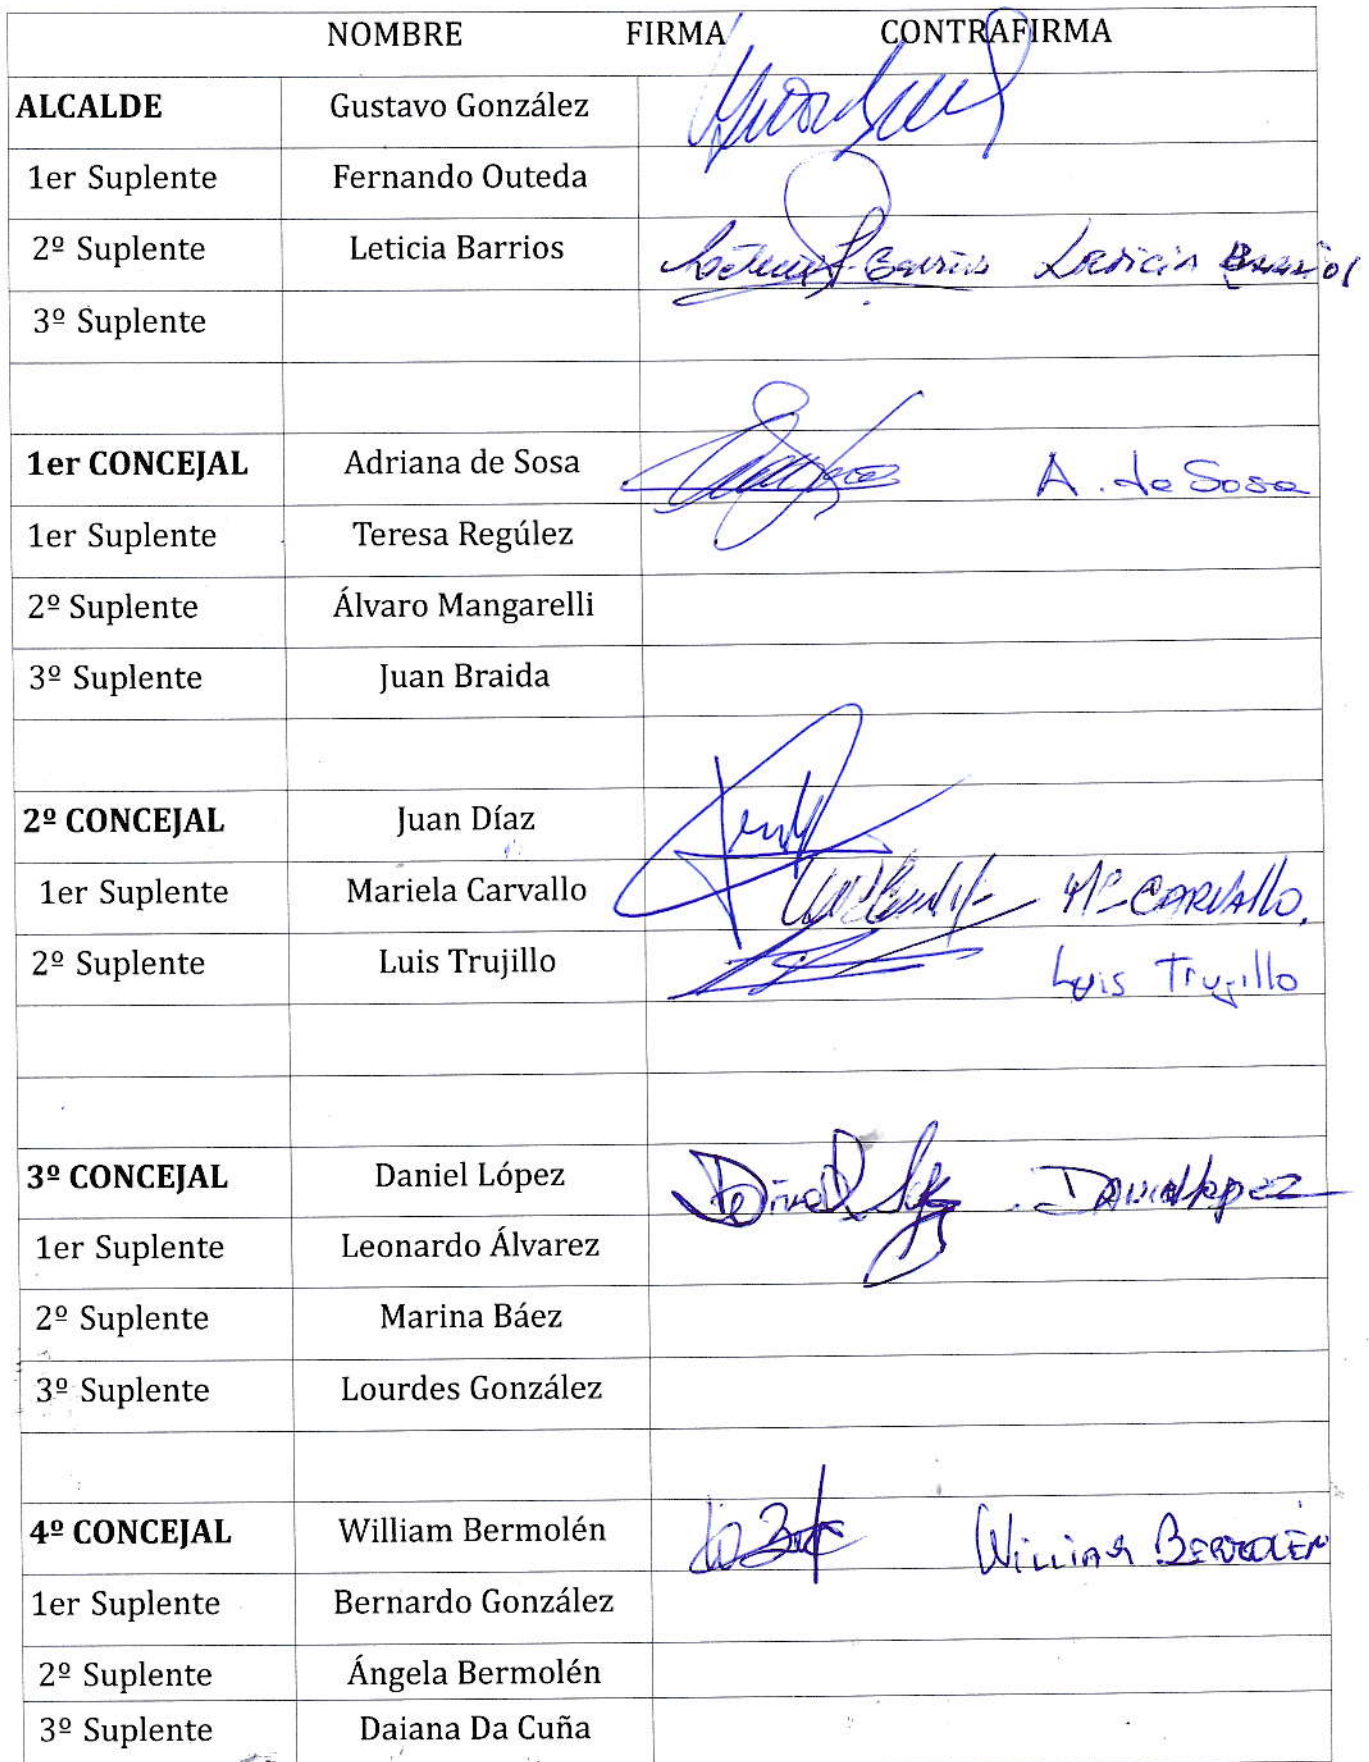 NOMBRE FIRMA CONTRAFIRMA
ALCALDE Gustavo González
1er Suplente Fernando Outeda
2º Suplente Leticia Barrios Leticia Barrios
3º Suplente
1er CONCEJAL Adriana de Sosa A. de Sosa
1er Suplente Teresa Regúlez
2º Suplente Álvaro Mangarelli
3º Suplente Juan Braida
2º CONCEJAL Juan Díaz
1er Suplente Mariela Carvallo CARVALLO.
2º Suplente Luis Trujillo Luis Trujillo
3º CONCEJAL Daniel López Daniel Lopez
1er Suplente Leonardo Álvarez
2º Suplente Marina Báez
3º Suplente Lourdes González
4º CONCEJAL William Bermolén William BERMOLEN
1er Suplente Bernardo González
2º Suplente Ángela Bermolén
3º Suplente Daiana Da Cuña